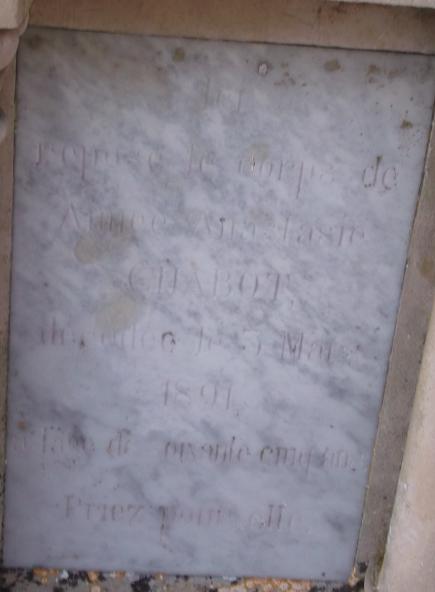 Ici
repose le corps de
Aimée Anastasie
CHABOT,
décédée le 5 Mars
1891,
à l'âge de soixante cinq ans.
Priez pour elle.